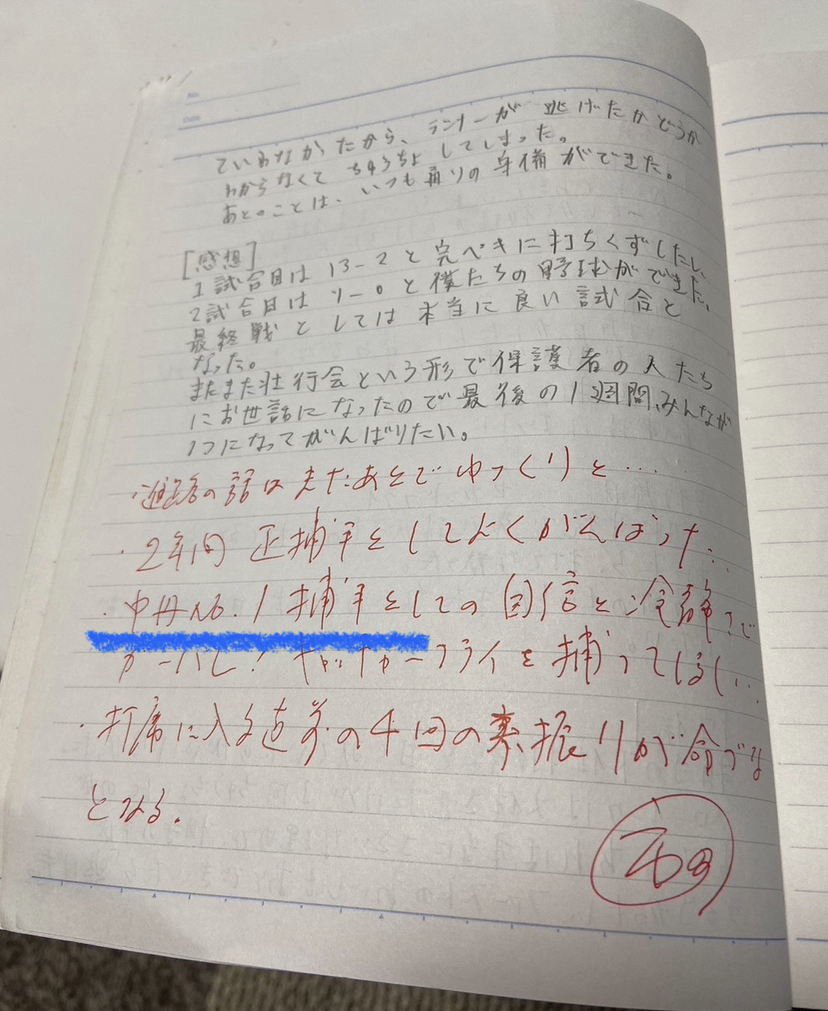 ていわなかたから、ランナーが逃げたかどうか
わからなくてちょうちょしてしまった。
あとのことは、いつも通りの守備ができた。
[感想]
1試合目は13-2と完ペキに打ちくずしたし、
2試合目は9-0と僕たちの野球ができた。
最終戦としては本当に良い試合と
なった。
またまた壮行会という形で保護者の人たち
にお世話になったので最後の1週間、みんなが
1つになってがんばりたい。
の話はまたあとでゆっくりと…
・2年間正捕手としてよくがんばった…
・中丹No.1捕手としての自信と冷静さで
キャッチャーフライを捕ってほしい…
・打席に入る直前の4回の素振りが命づな
となる。